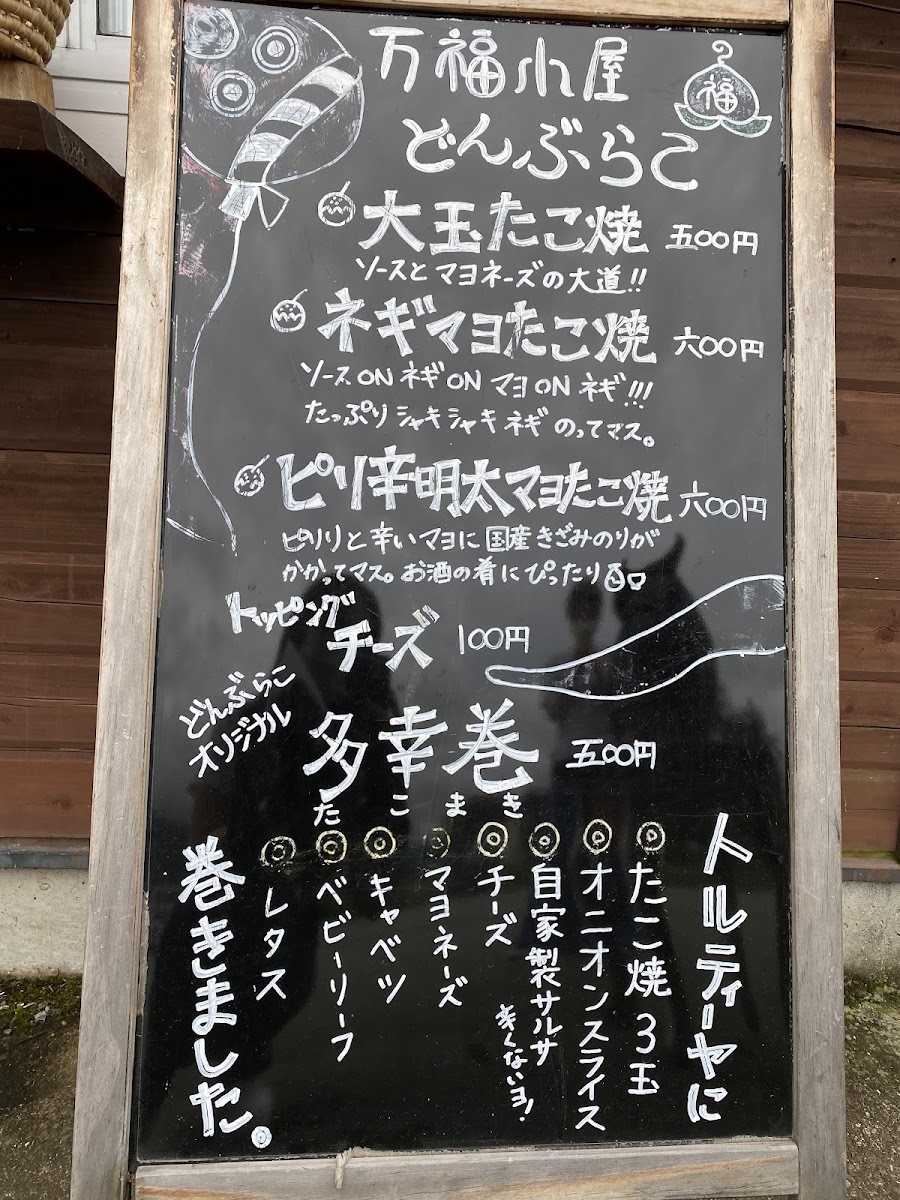 万福小屋
福
どんぶらこ
大玉たこ焼 五〇〇円
ソースとマヨネーズの大道!!
ネギマヨたこ焼 六〇〇円
ソースON ネギON マヨON ネギ!!!
たっぷりシャキシャキネギのってマス。
ピリ辛明太マヨたこ焼 六〇〇円
ピリリと辛いマヨに国産きざみのりが
かかってマス。お酒の肴にぴったり
トッピング
チーズ 100円
どんぶらこ
オリジナル
多幸巻 五〇〇円
たこまき
トルティーヤに
◎たこ焼3玉
◎オニオンスライス
◎自家製サルサ
辛くないヨ!
◎チーズ
◎マヨネーズ
◎キャベツ
◎ベビーリーフ
◎レタス
巻きました。